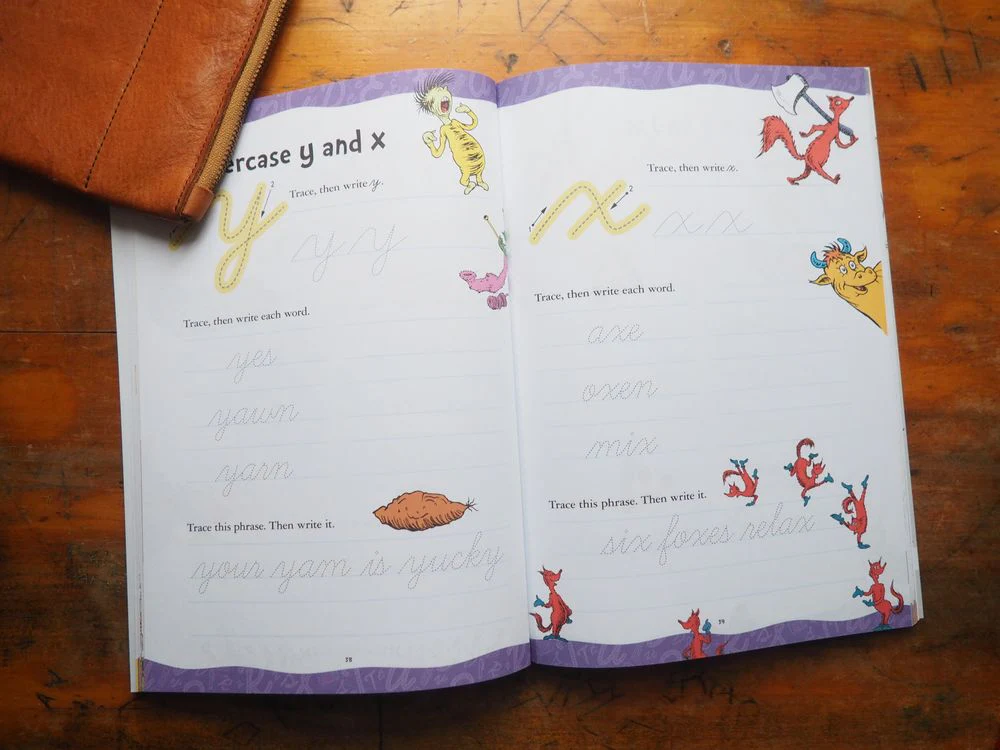 ercase y and x
Trace, then write y.
2
y
y y
Trace, then write each word.
yes
yawn
yarn
Trace this phrase. Then write it.
your yam is yucky
38
Trace, then write x.
1
2
x
x x
Trace, then write each word.
axe
oxen
mix
Trace this phrase. Then write it.
six foxes relax
39